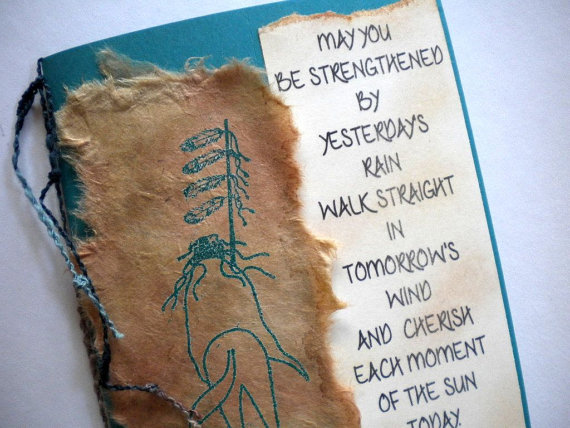 MAY YOU
BE STRENGTHENED
BY
YESTERDAYS
RAIN
WALK STRAIGHT
IN
TOMORROW'S
WIND
AND CHERISH
EACH MOMENT
OF THE SUN
TODAY.